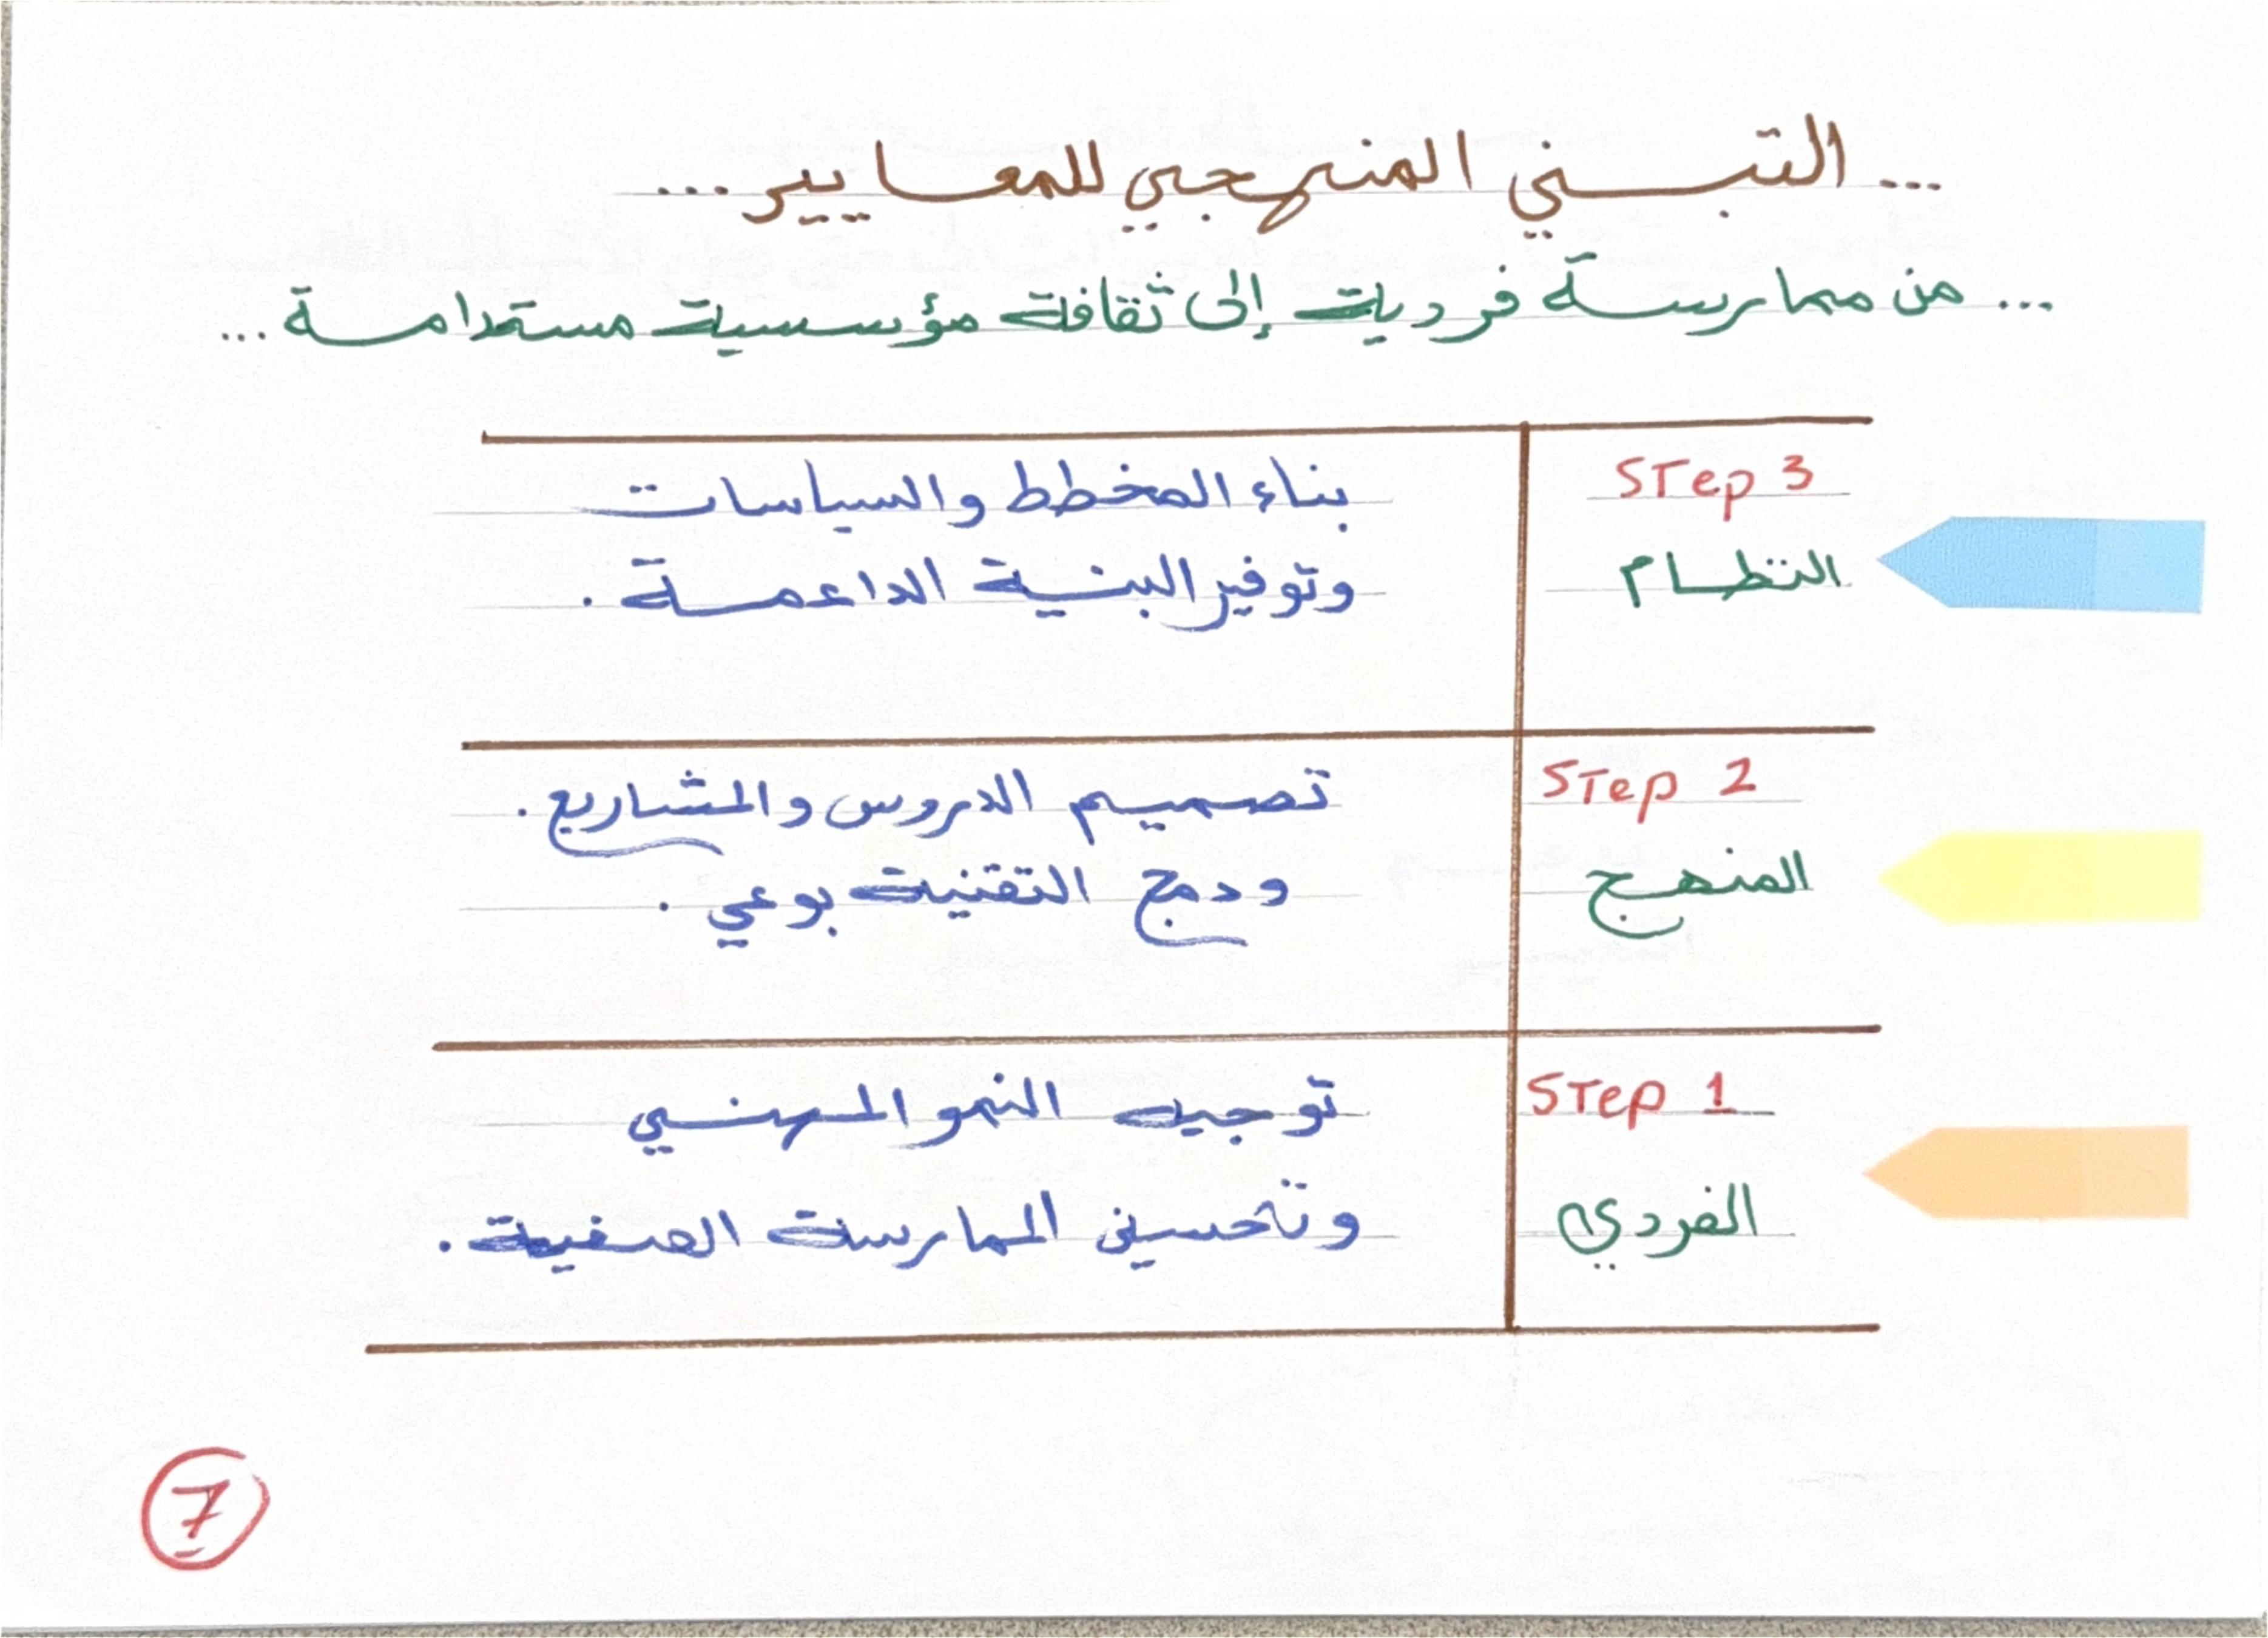 ... التبني المنهجي للمعايير ...
... من ممارسة فردية إلى ثقافة مؤسسية مستدامة ...
Step 3
النظام
بناء المخطط والسياسات
وتوفير البنية الداعمة .
Step 2
المنهج
تصميم الدروس والمشاريع .
ودمج التقنية بوعي .
Step 1
الفردي
توجيه النمو المهني
وتحسين الممارسة الصفية .
7